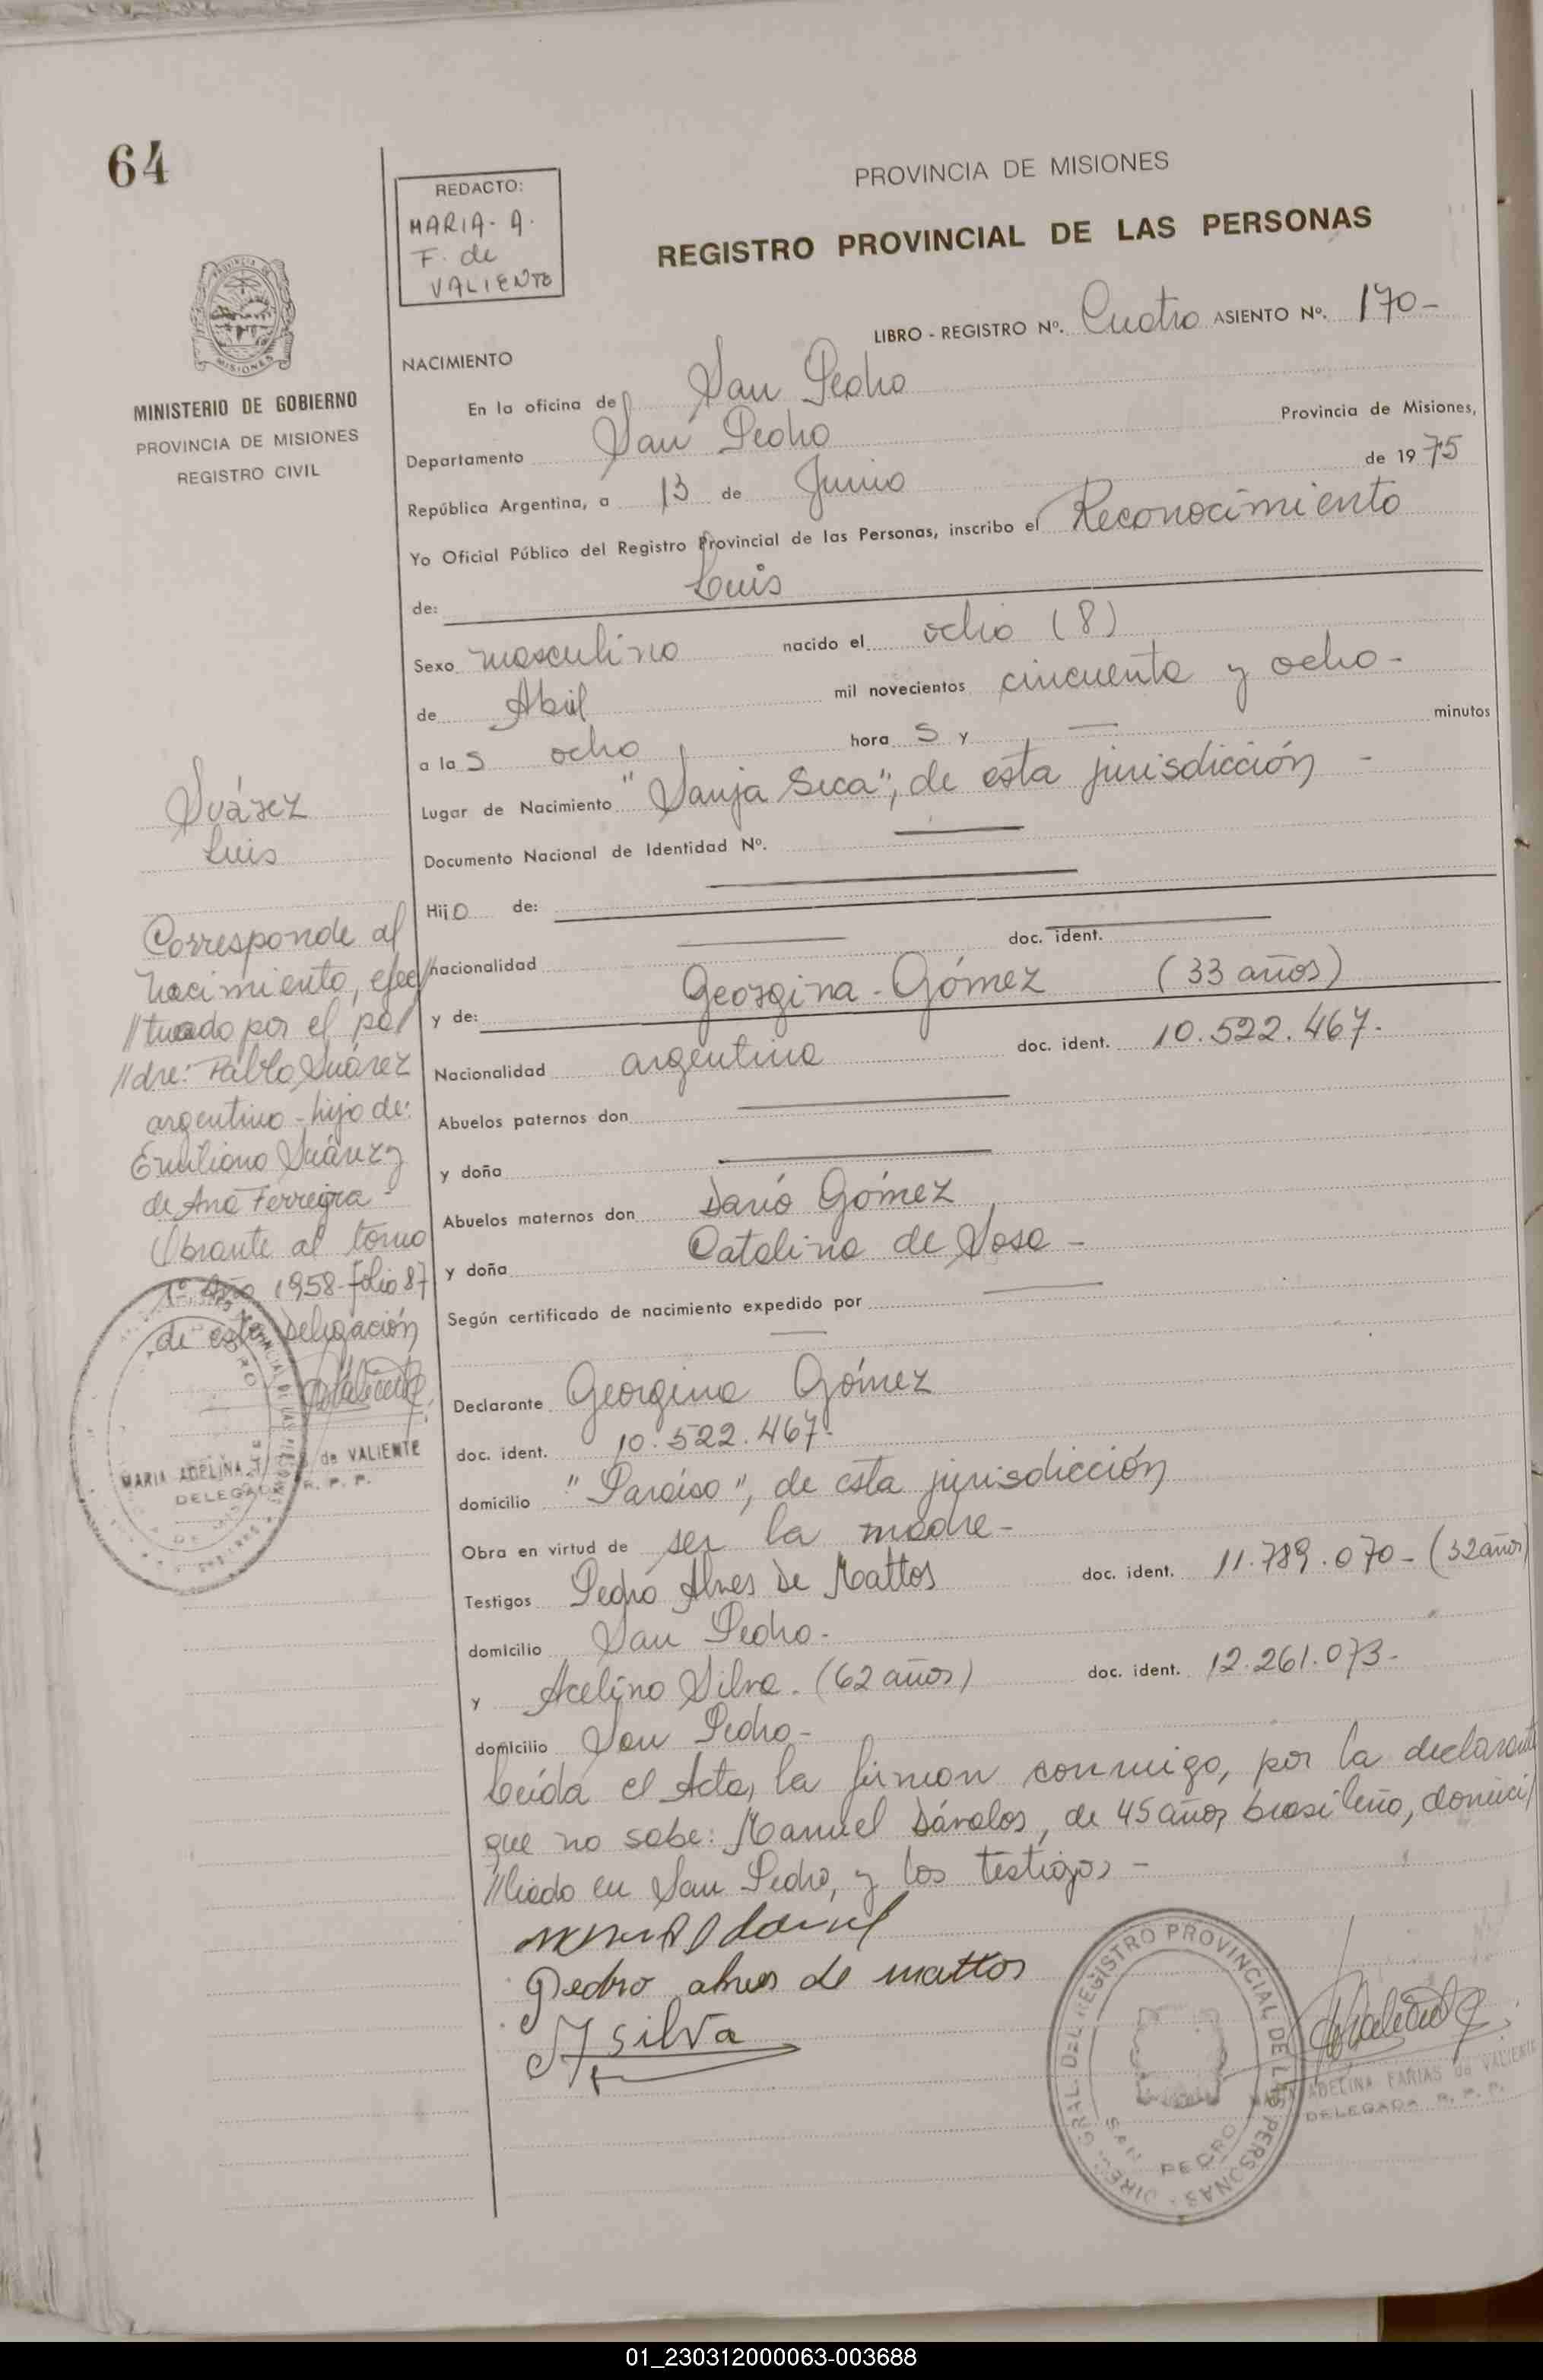 64
REDACTO:
MARIA-A.
F. de
VALIENTE
PROVINCIA DE MISIONES
REGISTRO PROVINCIAL DE LAS PERSONAS
LIBRO - REGISTRO Nº. Cuatro ASIENTO Nº. 170-
MINISTERIO DE GOBIERNO
PROVINCIA DE MISIONES
REGISTRO CIVIL
NACIMIENTO
En la oficina de San Pedro
Departamento San Pedro Provincia de Misiones,
República Argentina, a 13 de Junio de 1975
Yo Oficial Público del Registro Provincial de las Personas, inscribo el Reconocimiento
de: Luis
Sexo masculino nacido el ocho (8)
de Abril mil novecientos cincuenta y ocho-
a las ocho horas y — minutos
Lugar de Nacimiento "Sanja Seca", de esta jurisdicción -
Documento Nacional de Identidad Nº.
Hijo de:
nacionalidad doc. ident.
y de: Georgina-Gómez (33 años)
Nacionalidad argentina doc. ident. 10.522.467.
Abuelos paternos don
y doña
Abuelos maternos don Darió Gómez
y doña Catalina de Sosa -
Según certificado de nacimiento expedido por
Declarante Georgina Gómez
doc. ident. 10.522.467-
domicilio "Paraiso", de esta jurisdicción
Obra en virtud de ser la madre-
Testigos Pedro Alves De Mattos doc. ident. 11.789.070- (32 años)
domicilio San Pedro-
y Acelino Silva. (62 años) doc. ident. 12.261.073-
domicilio San Pedro-
Leída el Acta, la firman conmigo, por la declarante
que no sabe: Manuel Dávalos, de 45 años, brasileño, domici/
//liado en San Pedro, y los testigos-
Pedro alves de mattos
A silva
Suárez
Luis
Corresponde al
nacimiento, efec/
//tuado por el pa/
//dre: Pablo Suárez
argentino-hijo de:
Emiliano Suárez y
de Ana Ferreira-
Obrante al tomo
1º Año 1958-folio 87
de esta Delegación
MARIA ADELINA F. de VALIENTE
DELEGADA R. P. P.
DIREC. GRAL. DEL REGISTRO PROVINCIAL DE LAS PERSONAS
SAN PEDRO
MARIA ADELINA FARIAS de VALIENTE
DELEGADA R. P. P.
01_230312000063-003688